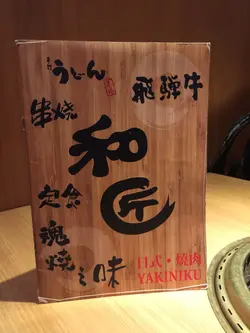 うどん
飛騨牛
串焼
和匠
定食
魂焼之味
日式・燒肉
YAKINIKU